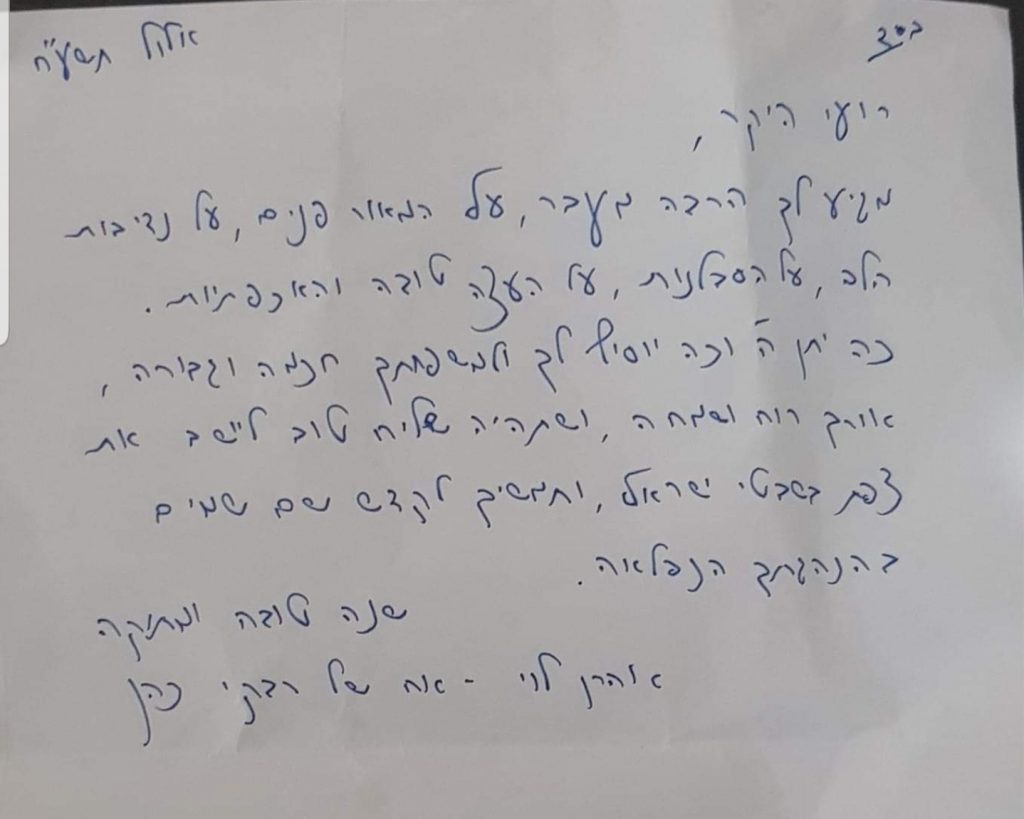 בס״ד
אלול תשע״ח
רועי היקר,
מגיע לך הרבה מעבר, על המאור פנים, על נדיבות
הלב, על הסבלנות, על העצה טובה והאכפתיות.
כה יתן ה' וכה יוסיף לך ולמשפחתך חכמה וגבורה,
אורך רוח ושמחה, ושתהיה שליח טוב ליישב את
צפת בשבטי ישראל, ותמשיך לקדש שם שמים
בהנהגתך הנפלאה.
שנה טובה ומתוקה
אהרן לוי - אח של רבקי כהן